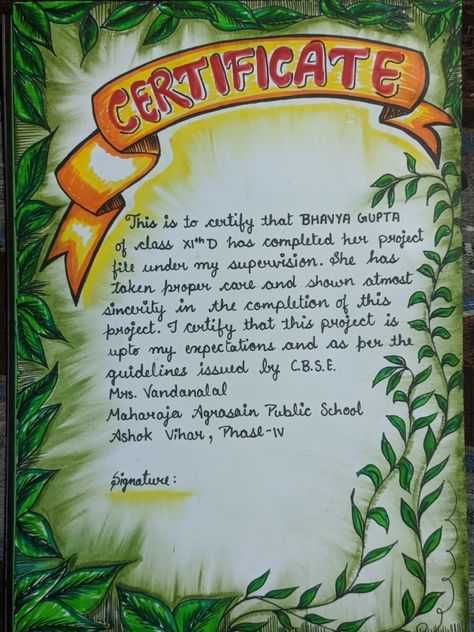 CERTIFICATE
This is to certify that BHAVYA GUPTA
of class XIth D has completed her project
file under my supervision. She has
taken proper care and shown atmost
sincerity in the completion of this
project. I certify that this project is
upto my expectations and as per the
guidelines issued by C.B.S.E.
Mrs. Vandanalal
Maharaja Agrasain Public School
Ashok Vihar, Phase-IV
Signature: